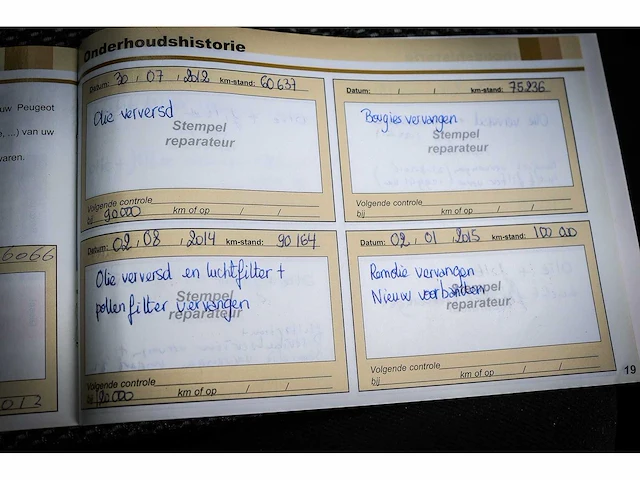 Onderhoudshistorie
uw Peugeot
, ...) van uw
varen.
6066
Datum: 30 / 07 / 2012 km-stand: 60 637
Olie ververst
Stempel
reparateur
Volgende controle
bij 90.000 km of op / /
Datum: / / km-stand: 75.236
Bougies vervangen
Stempel
reparateur
Volgende controle
bij km of op / /
Datum: 02 / 08 / 2014 km-stand: 90 164
Olie ververst en luchtfilter +
pollenfilter vervangen
Stempel
reparateur
Volgende controle
bij 120.000 km of op / /
Datum: 02 / 01 / 2015 km-stand: 100 000
Remolie vervangen
Nieuw voorbanden
Stempel
reparateur
Volgende controle
bij km of op / /
19